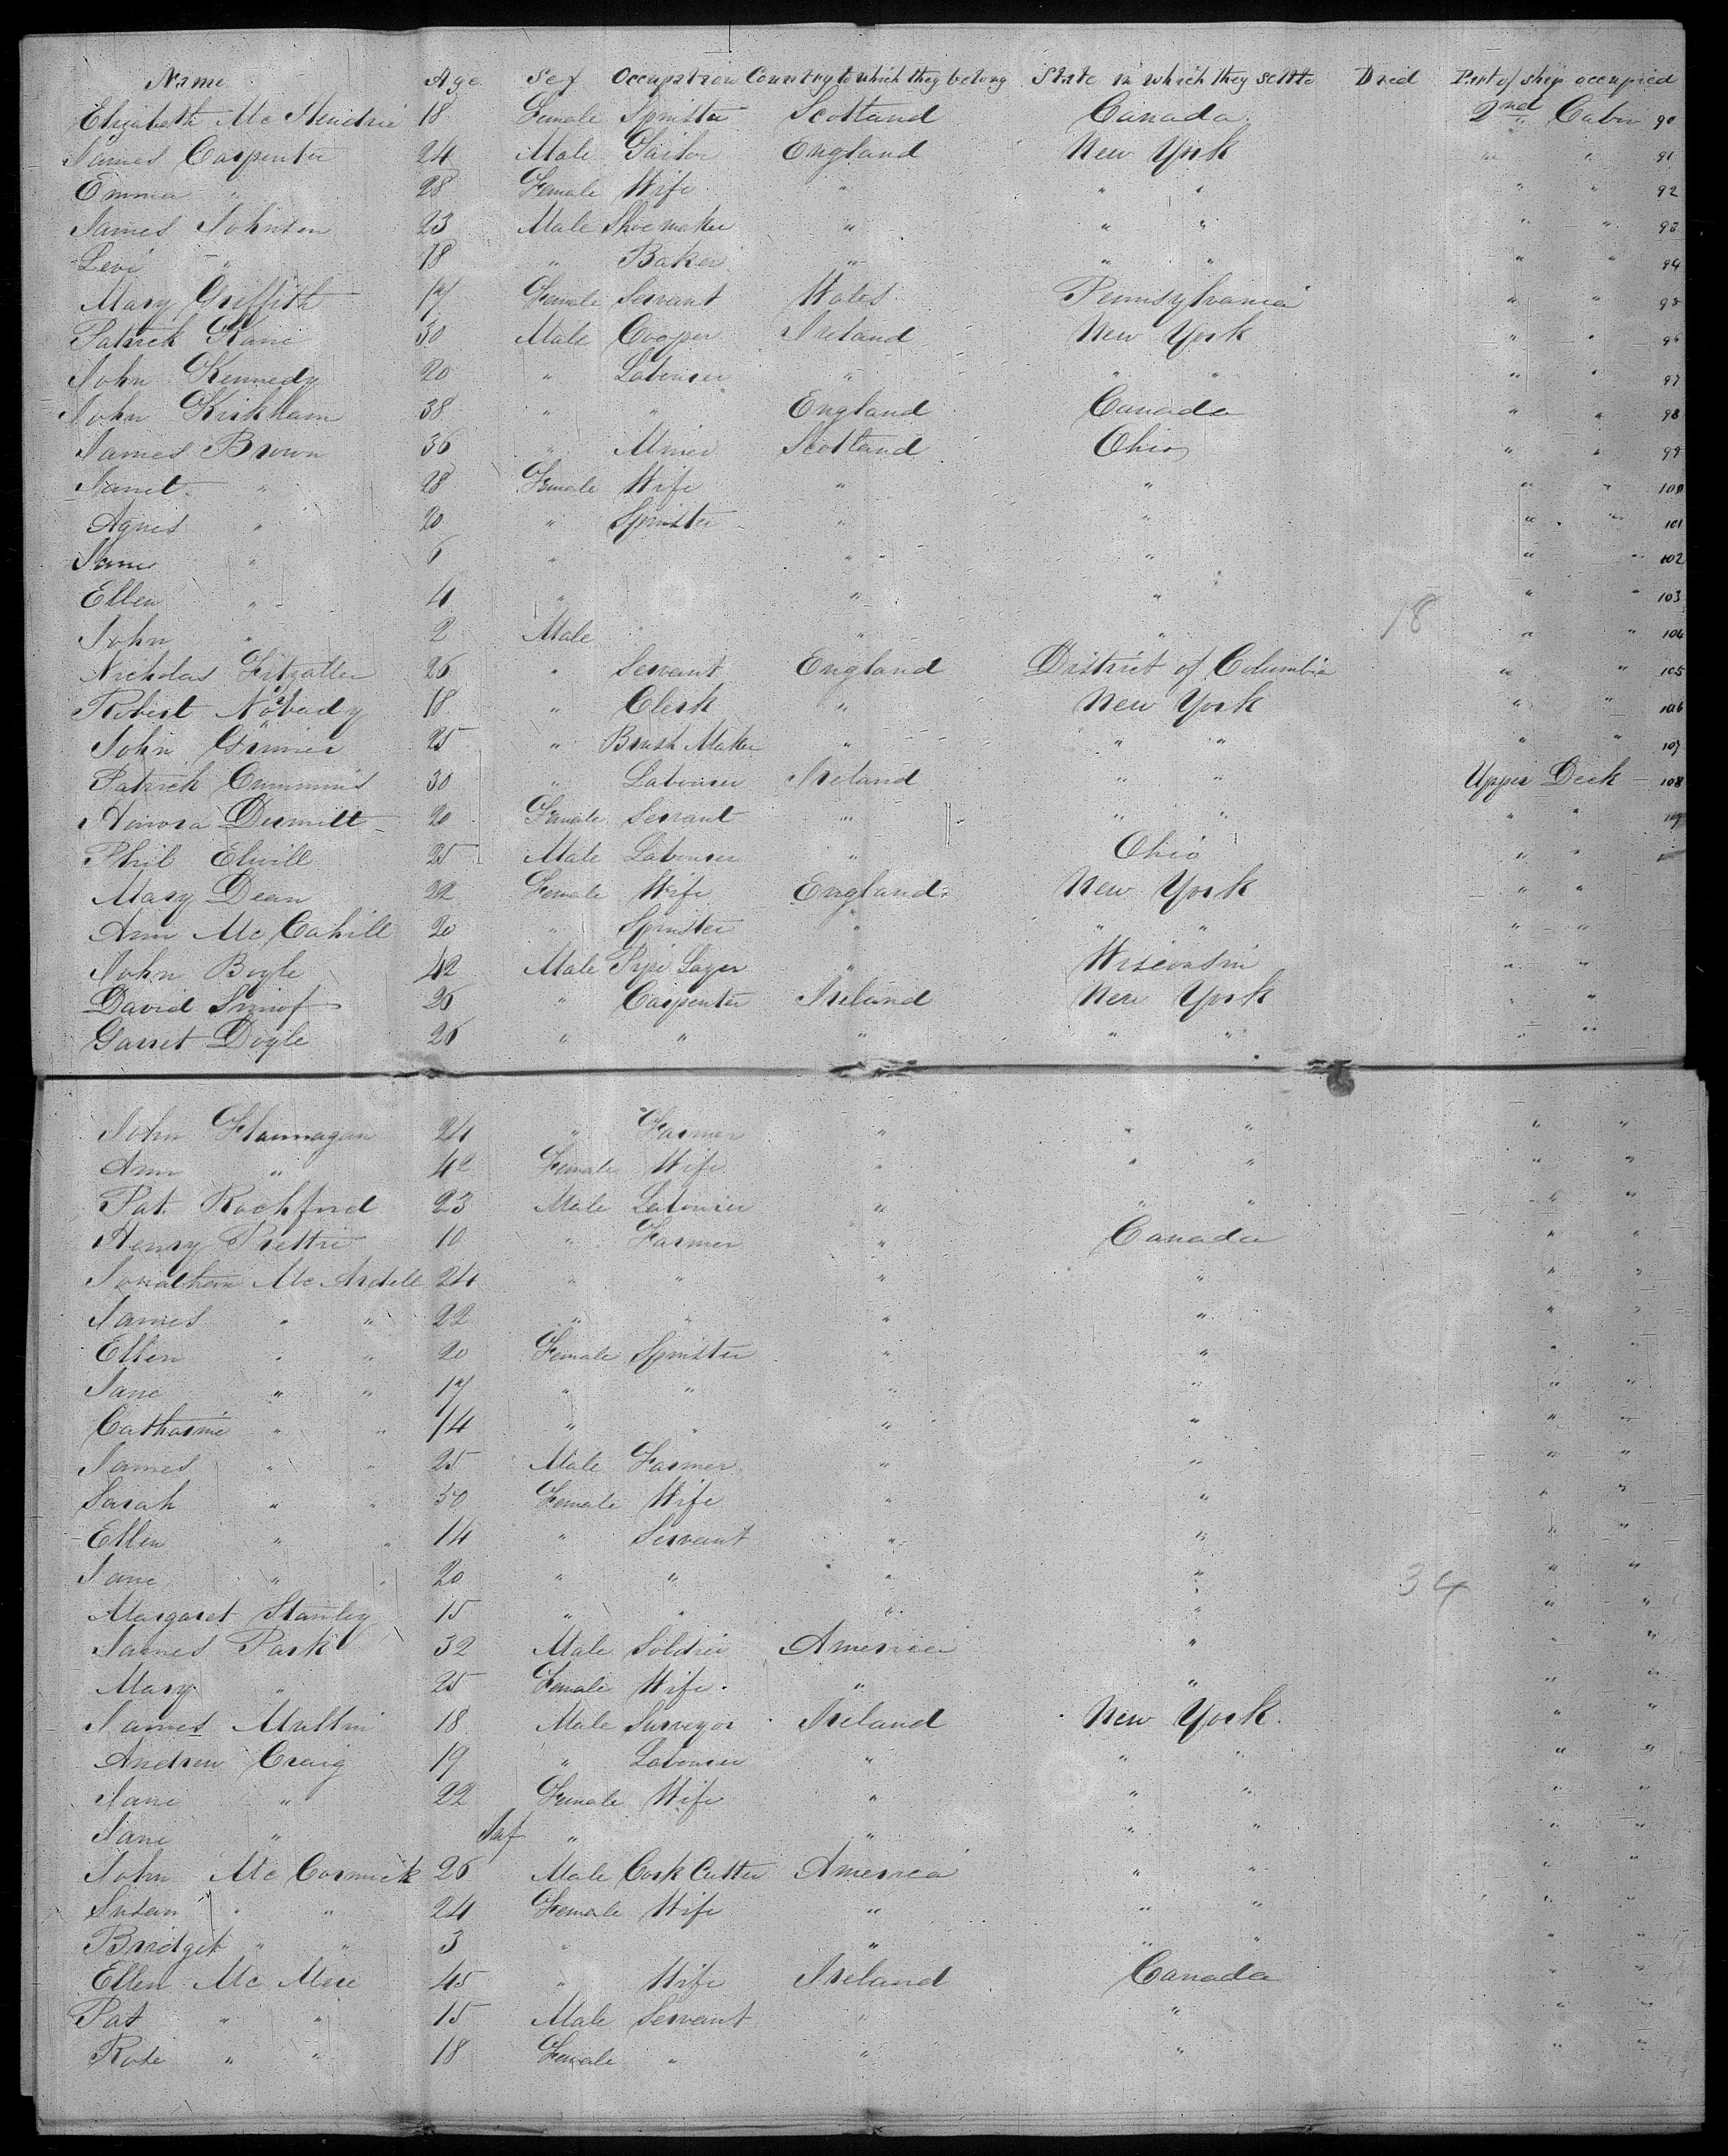 Name Age Sex Occupation Country to which they belong State in which they settle Died Part of ship occupied
Elizabeth Mc Hendrie 18 Female Spinster Scotland Canada 2nd Cabin 90
James Carpenter 24 Male Tailor England New York " " 91
Emma " 28 Female Wife " " " " " 92
James Johnson 23 Male Shoemaker " " " " " 93
Levi " 18 " Baker " " " " " 94
Mary Griffith 17 Female Servant Wales Pennsylvania " " 95
Patrick Kane 30 Male Cooper Ireland New York " " 96
John Kennedy 20 " Labourer " " " " " 97
John Kirkham 38 " " England Canada " " 98
James Brown 36 " Miner Scotland Ohio " " 99
Janet " 28 Female Wife " " " " 100
Agnes " 20 " Spinster " " " " 101
Jane " 6 " " " " " 102
Ellen " 4 " " " " " 103
John " 2 Male " " 18 " " 104
Nicholas 26 " Servant England District of Columbia " " 105
Robert 18 " Clerk " New York " " 106
John Grimes 25 " Brush Maker " " " " " 107
Patrick Cummins 30 " Labourer Ireland " " Upper Deck 108
Honora Dermitt 20 Female Servant " " " " " 109
Phil 25 Male Labourer " Ohio " "
Mary Dean 22 Female Wife England New York " "
Ann Mc Cahill 20 " Spinster " " " " "
John Boyle 42 Male Pipe Layer " Wisconsin " "
David 26 " Carpenter Ireland New York " "
Garret Doyle 26 " " " " " " "
John Flannagan 24 " Farmer " " " " "
Ann " 42 Female Wife " " " " "
Pat. Rochford 23 Male Labourer " " " " "
Henry 10 " Farmer " Canada " "
Jonathan Mc Ardell 24 " " " " " "
James " " 22 " " " " " "
Ellen " " 20 Female Spinster " " " "
Jane " " 17 " " " " " "
Catharine " " 14 " " " " " "
James " " 25 Male Farmer " " " "
Sarah " " 50 Female Wife " " " "
Ellen " " 14 " Servant " " " "
Jane " " 20 " " " " 34 " "
Margaret Stanley 15 " " " " " "
James Park 32 Male Soldier America " " "
Mary " 25 Female Wife " " " "
James Mullin 18 Male Surveyor Ireland New York " "
Andrew Craig 19 " Labourer " " " " "
Jane " 22 Female Wife " " " " "
Jane " Inf " " " " " "
John Mc Cormick 26 Male Cork Cutter America " " " "
Susan " " 24 Female Wife " " " " "
Bridget " " 3 " " " " " "
Ellen Mc 45 " Wife Ireland Canada " "
Pat " " 15 Male Servant " " " "
Rose " " 18 Female " " " " "